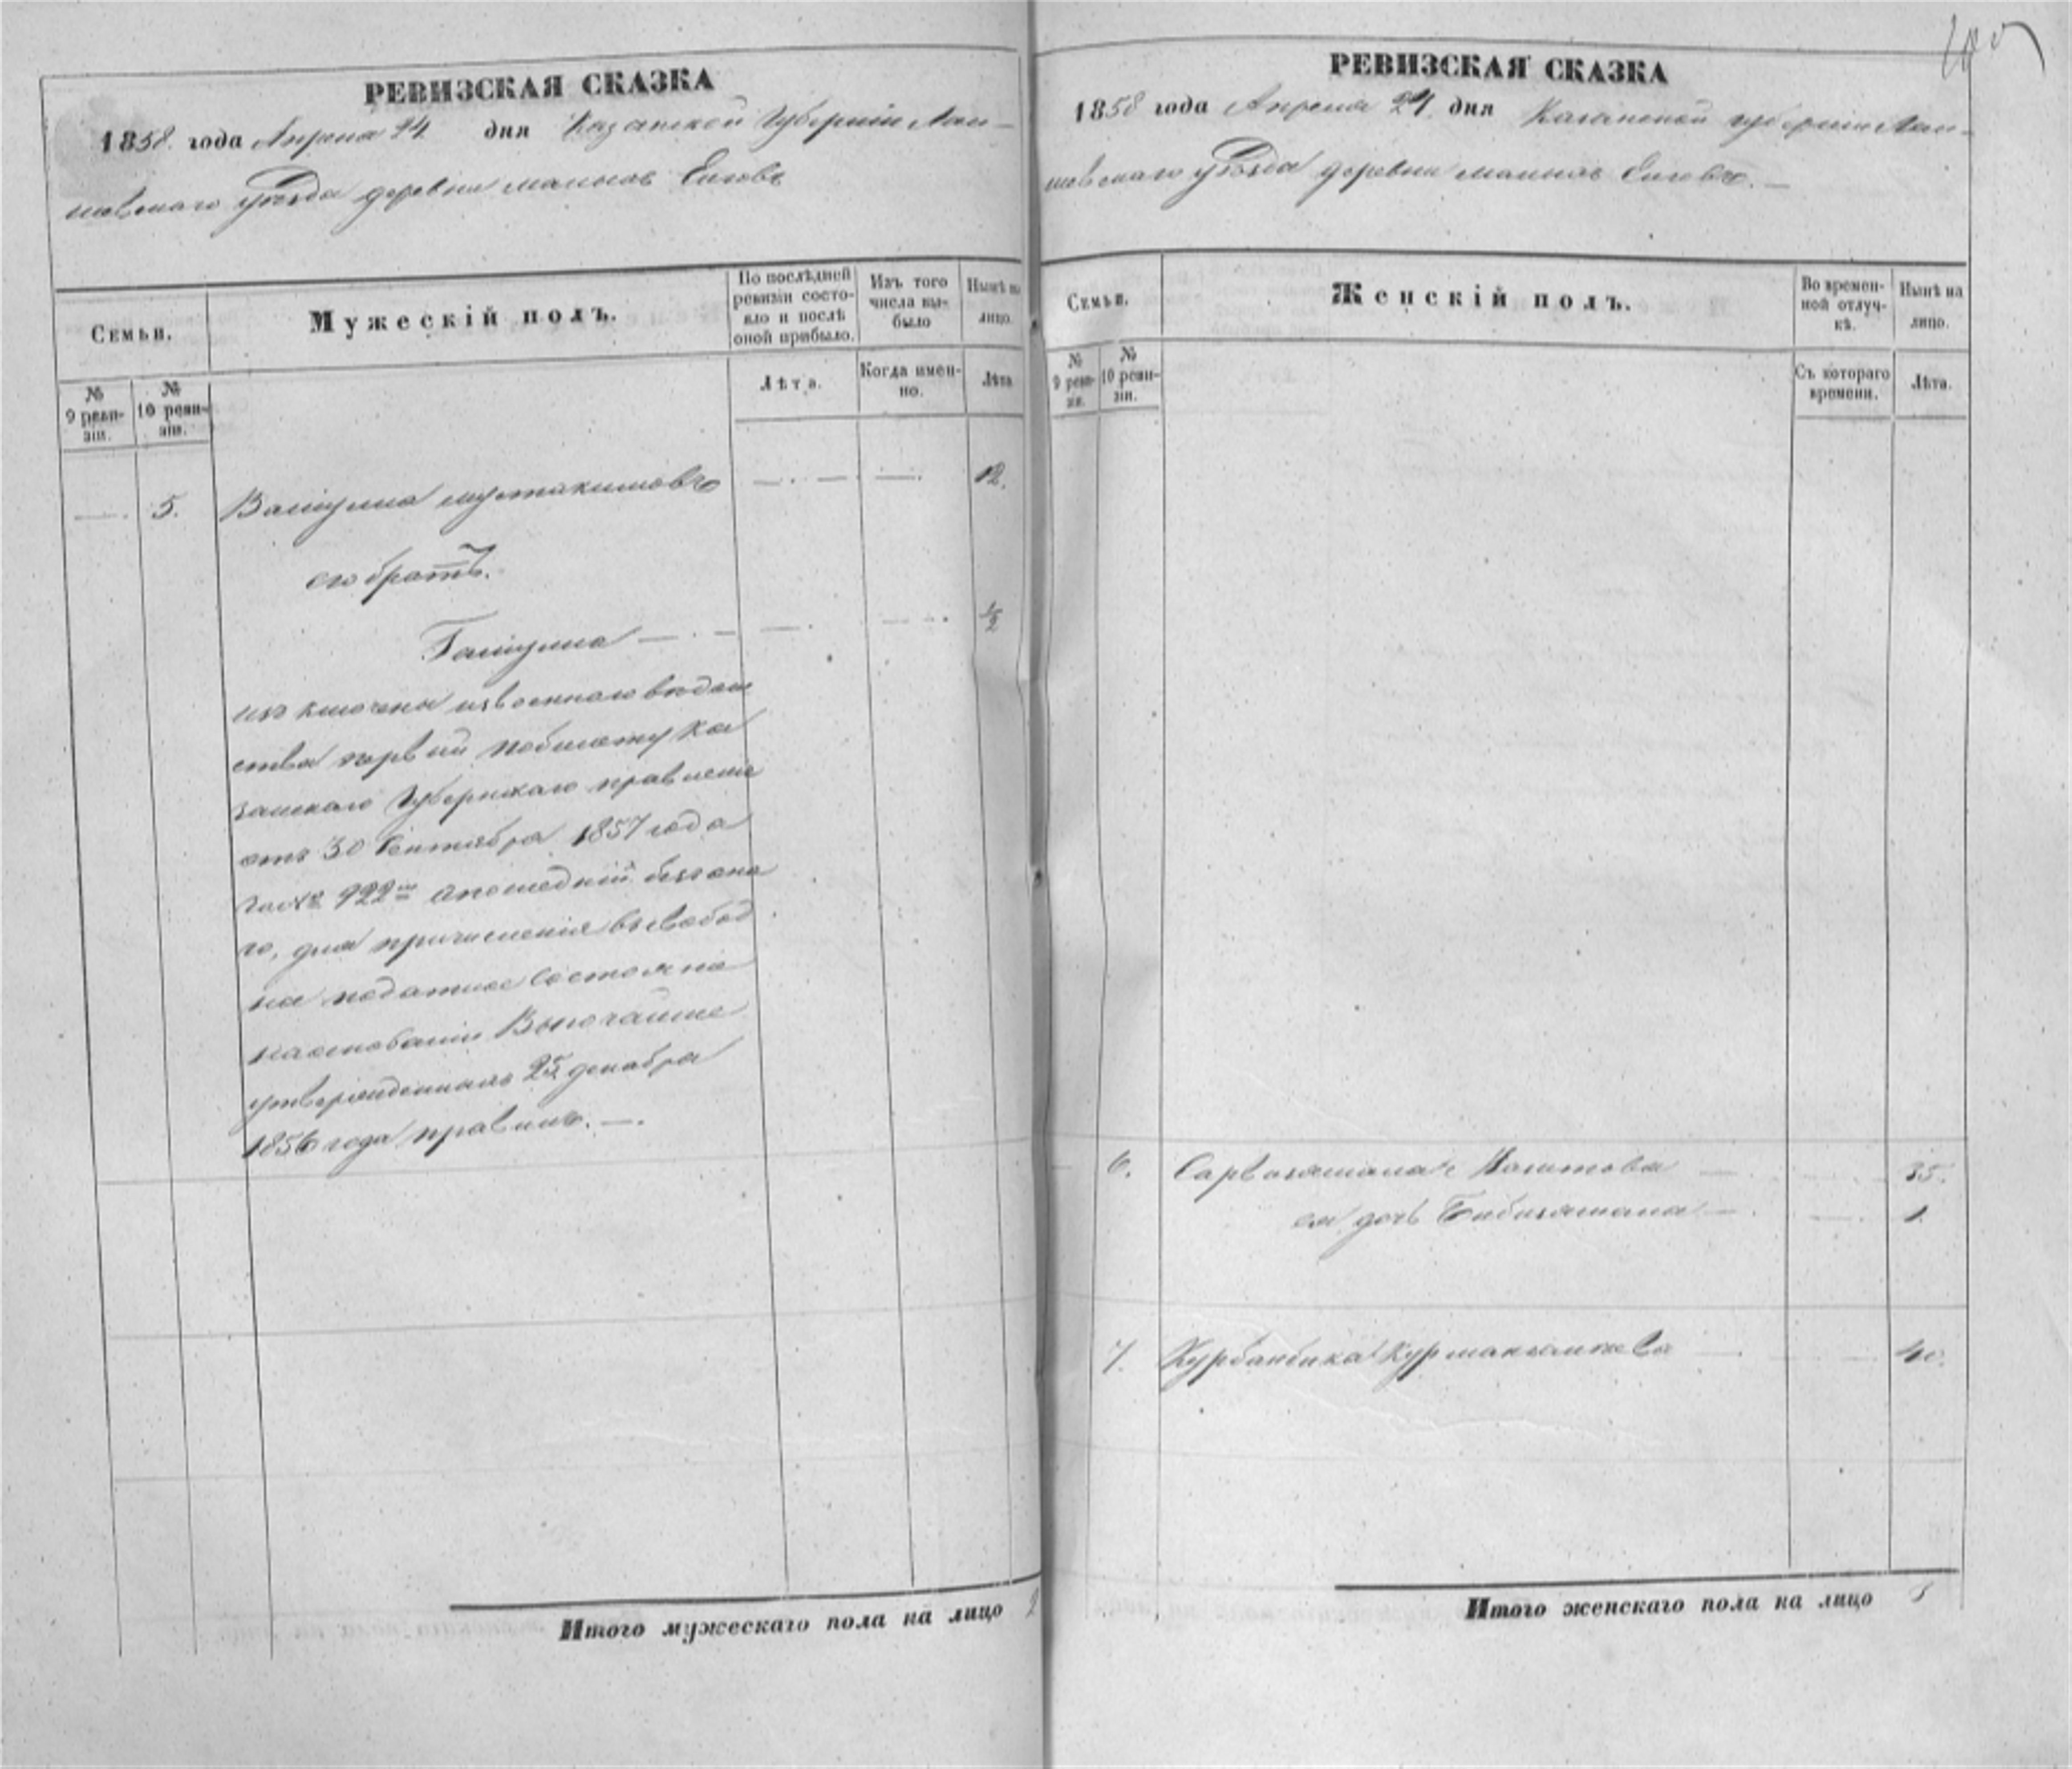 РЕВИЗСКАЯ СКАЗКА
1858 года Апреля 24 дня Казанской Губернии Лаи-
шевскаго уѣзда деревни малыхъ Елговъ
Семьи.
Мужескій полъ.
По послѣдней ревизіи состояло и послѣ оной прибыло.
Изъ того числа выбыло
Нынѣ на лицо.
№ 9 ревизіи.
№ 10 ревизіи.
Лѣта.
Когда именно.
Лѣта
5. Валиулла мустакимовъ 12.
его братъ.
Галиулла 1/2
изключены извоеннаго вѣдом
ства первый побилету Ка
занскаго Губернскаго правления
отъ 30 Сентября 1857 года
за № 922м апоследній безъ она
го, для причисления въ свобод
ное податное Состояние
наосновании Высочайше
утвержденныхъ 25 декабря
1856 года правилъ.
Итого мужескаго пола на лицо 2
РЕВИЗСКАЯ СКАЗКА
1858 года Апреля 24 дня Казанской губернии Лаи-
шевскаго уѣзда деревни малыхъ Елговъ.
Семьи.
Женскій полъ.
Во временной отлучкѣ.
Нынѣ на лицо.
№ 9 ревизіи.
№ 10 ревизіи.
Съ котораго времени.
Лѣта.
6. 35.
ея дочь Бибизямала 1.
7. Курбанбика 40.
Итого женскаго пола на лицо